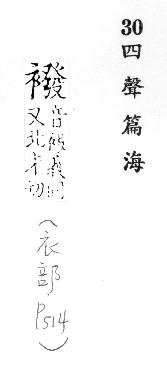 30四聲篇海
襏音鉢義同
又北末切
(衣部
P514)